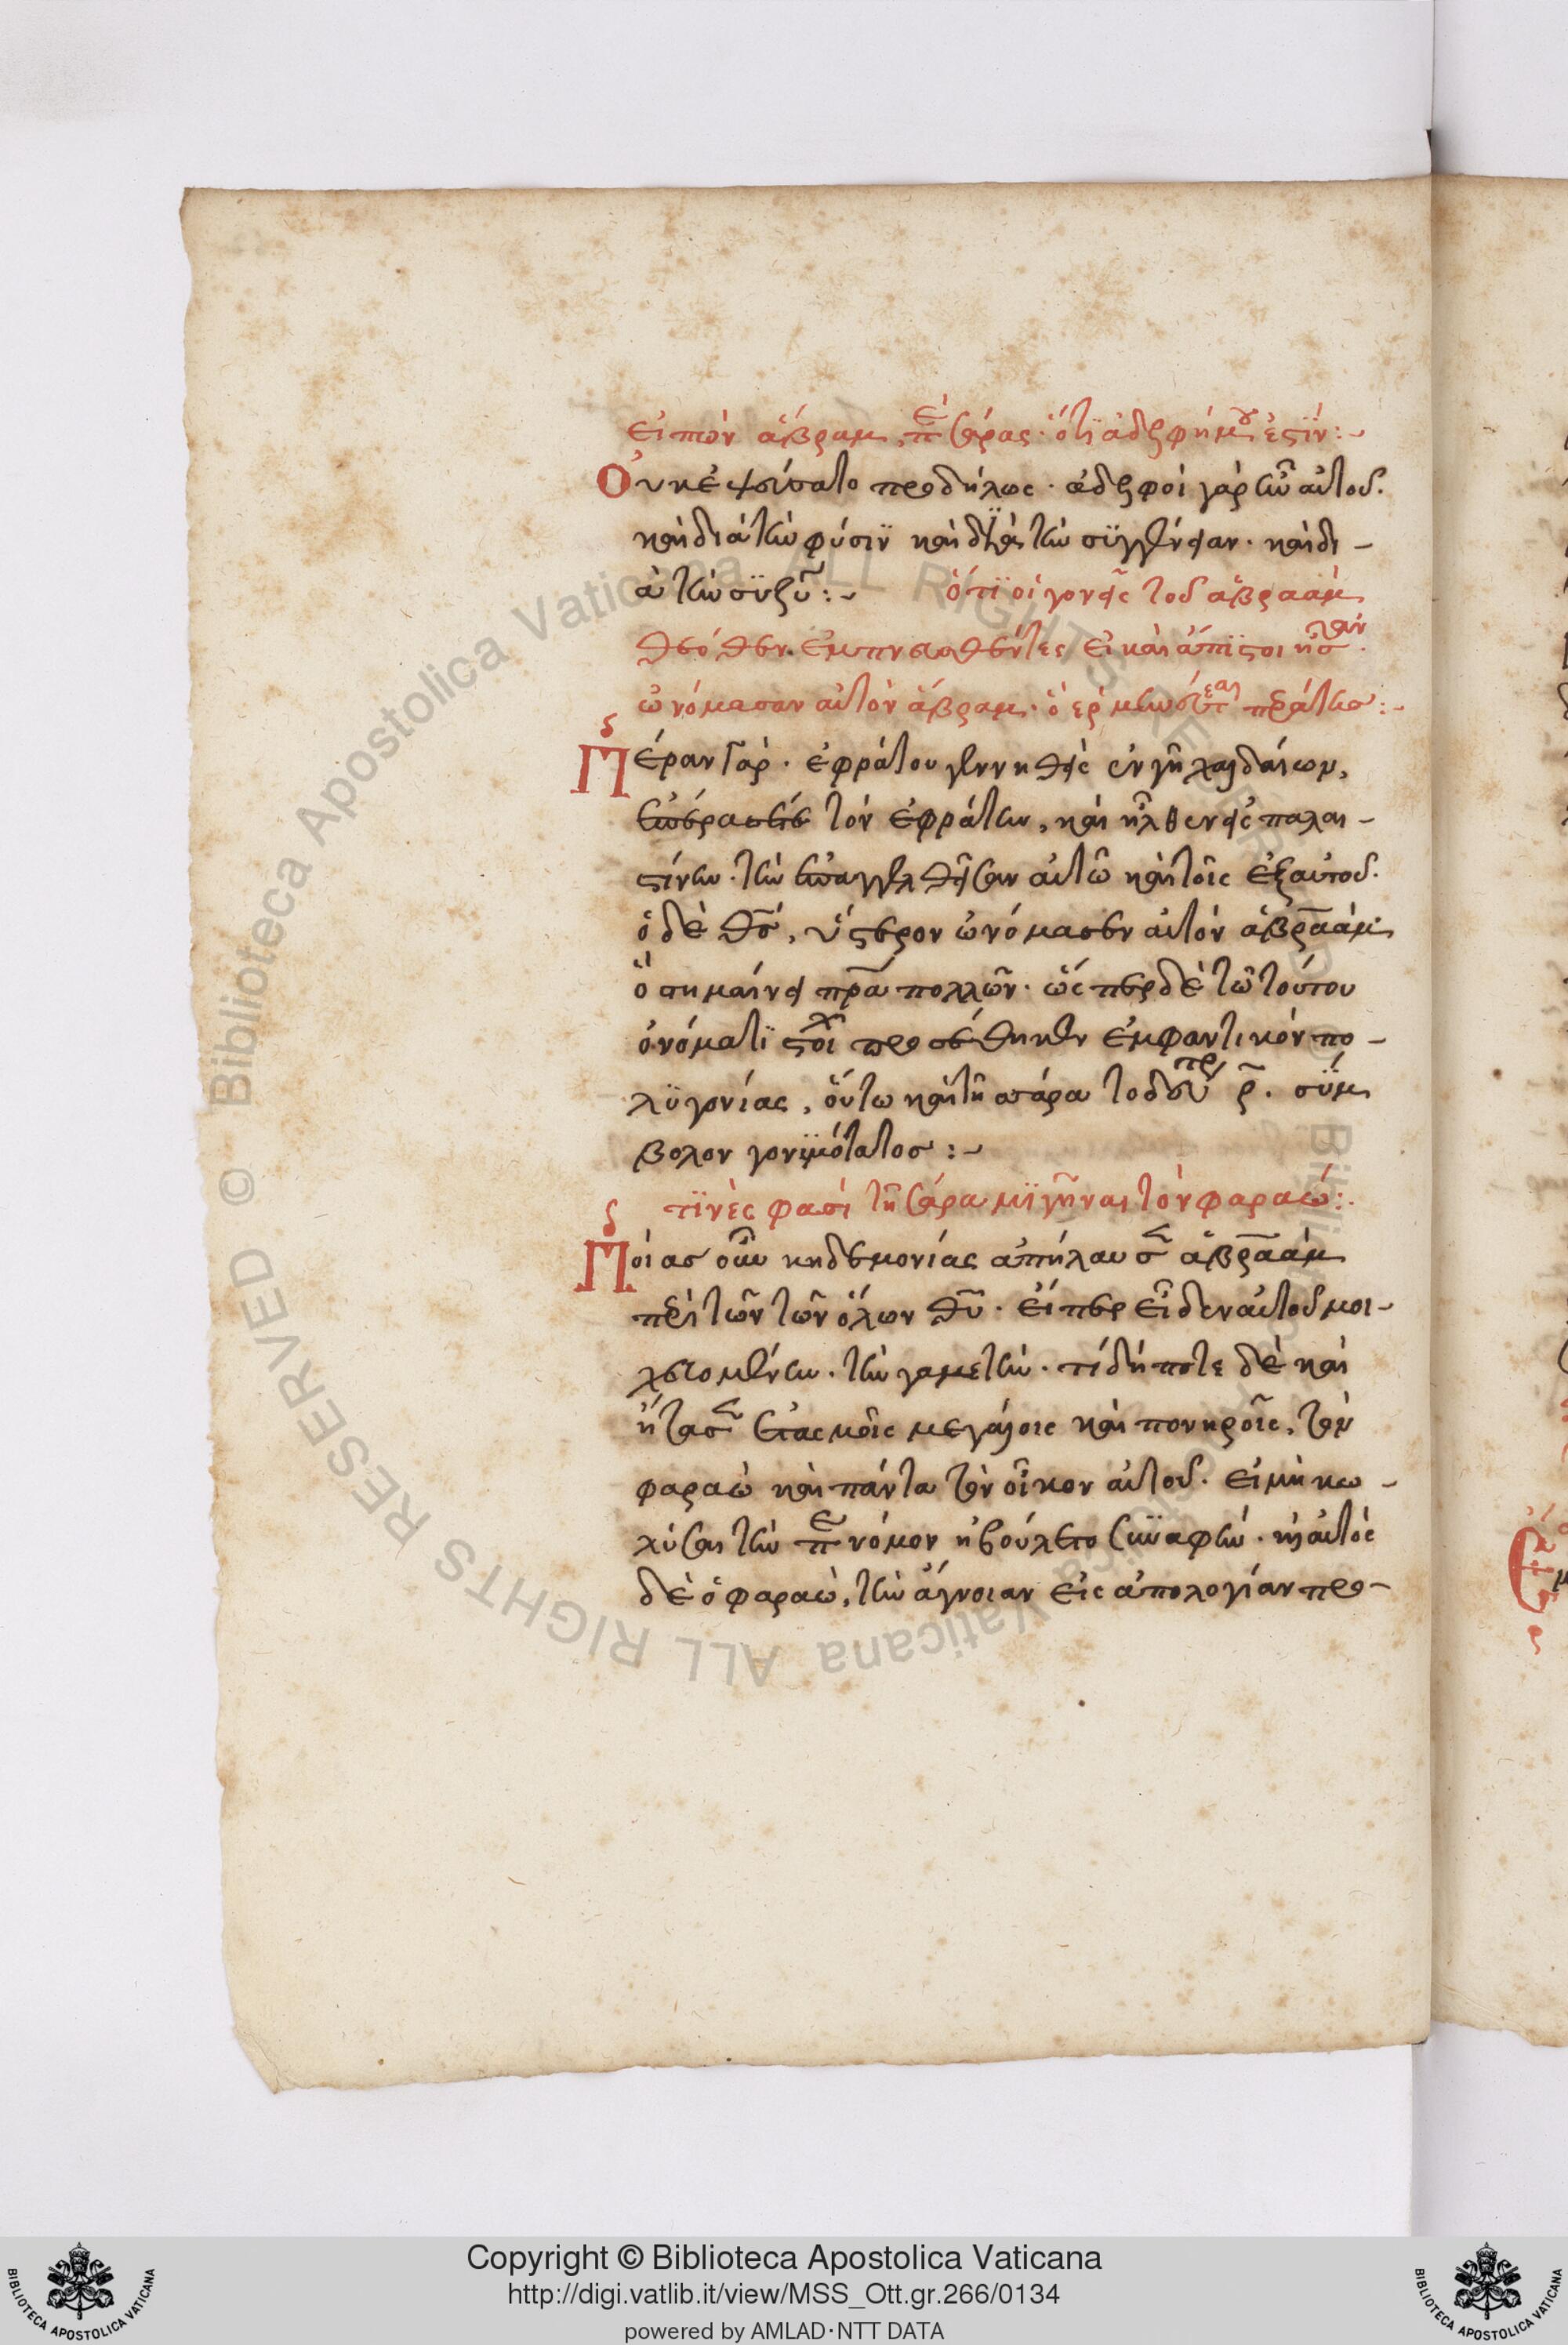 εἰπὼν ἅβραμ, περὶ σάρας· ὅτι ἀδελφή μου ἐστίν:~
Οὐκ ἐψεύσατο προδήλως· ἀδελφοὶ γὰρ ἦν αὐτοῦ.
καὶ διὰ τὴν φύσιν καὶ διὰ τὴν συγγένειαν· καὶ δι-
ὰ τὴν
ὅτι οἱ γονεῖς τοῦ ἀβραὰμ
θεόθεν ἐμπνευσθέντες εἰ καὶ ἄπιστοι ἦσαν.
ὠνόμασαν αὐτὸν ἅβραμ· ὃ ἑρμηνεύεται περάτης:~
Πέραν γὰρ· ἐφράτου γεννηθεὶς ἐν γῆ χαλδαίων,
ἐπέρασε τὸν ἐφράτην, καὶ ἦλθεν εἰς παλαι-
στίνην· τὴν ἐπαγγελθεῖσαν αὐτῶ καὶ τοῖς ἐξ αὐτοῦ.
ὁ δὲ θς, ὕστερον ὠνόμασεν αὐτὸν ἀβραὰμ
ὃ σημαίνει πρα πολλῶν· ὥσπερ δὲ τῶ τούτου
ὀνόματι στοιχ προσέθηκεν ἐμφαντικὸν πο-
λυγονίας, οὕτω καὶ τῆ σάρα τοῦ ρ. σύμ
βολον γονιμότατος:~
τινές φασὶ τῆ σάρα μιγῆναι τὸν φαραώ:~
Ποίας οὖν κηδεμονίας ἀπήλαυσεν ἀβραὰμ
περὶ τῶν τῶν ὅλων θυ· εἴπερ εἶδεν αὐτοῦ μοι-
χευομένην· τὴν γαμετήν· τί δήποτε δὲ καὶ
ἤτασεν ἐτασμοῖς μεγάλοις καὶ πονηροῖς, τὸν
φαραὼ καὶ πάντα τὸν οἶκον αὐτοῦ· εἰ μὴ κω-
λύσαι τὴν παράνομον ἠβούλετο συναφήν· καὶ αὐτὸς
δὲ ὁ φαραὼ, τὴν ἄγνοιαν εἰς ἀπολογίαν προ-
Copyright © Biblioteca Apostolica Vaticana
http://digi.vatlib.it/view/MSS_Ott.gr.266/0134
powered by AMLAD·NTT DATA